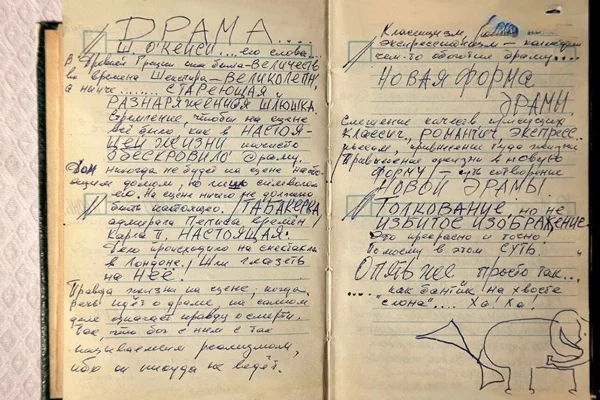 ДРАМА....
Ш. О'КЕЙСИ ... его слова.
В Древней Греции она была – ВЕЛИЧЕСТВ
во времена Шекспира – ВЕЛИКОЛЕПН,
а нынче ....... СТАРЕЮЩАЯ,
РАЗНАРЯЖЕННАЯ ШЛЮШКА.
Стремление, чтобы на сцене
всё было как в НАСТОЯ-
ЩЕЙ ЖИЗНИ начисто
ОБЕСКРОВИЛО драму.
Дом никогда не будет на сцене насто-
ящим домом, но лишь символом
его. На сцене ничто не должно
быть настоящего. ТАБАКЕРКА
адмирала времён
Карла II. НАСТОЯЩАЯ.
Дело происходило на спектакле
в Лондоне. Шли глазеть
на НЕЁ.
Правда жизни на сцене, когда
речь идёт о драме, на самом
деле означает правду о смерти.
Так, что бог с ним с так
называемым реализмом,
ибо он никуда не ведёт.
Классицизм,
экспрессионизм –
чем-то обогатил драму....
НОВАЯ ФОРМА
ДРАМЫ
Смешение качеств присущих
КЛАССИЧ., РОМАНТИЧ., ЭКСПРЕСС.
туда жизни
в новую
ФОРМУ) – суть сотворение
НОВОЙ ДРАМЫ.
ТОЛКОВАНИЕ, но не
ИЗБИТОЕ ИЗОБРАЖЕНИЕ.
Это прекрасно и точно.
По моему в этом СУТЬ.
ОПЯТЬ ЖЕ просто так...
..... как бантик на хвосте
"слона".... Ха! Ха!